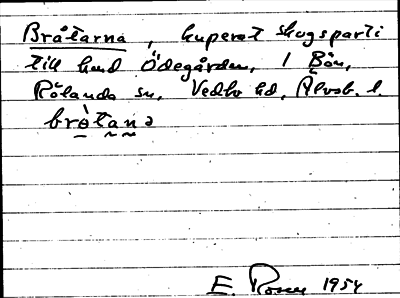 Bråtarna, kuperat skogsparti
till hmd Ödegården, 1 Bön,
Rölanda sn, Vedbo hd, Älvsb. l.
brø̀tanə
E. 1954